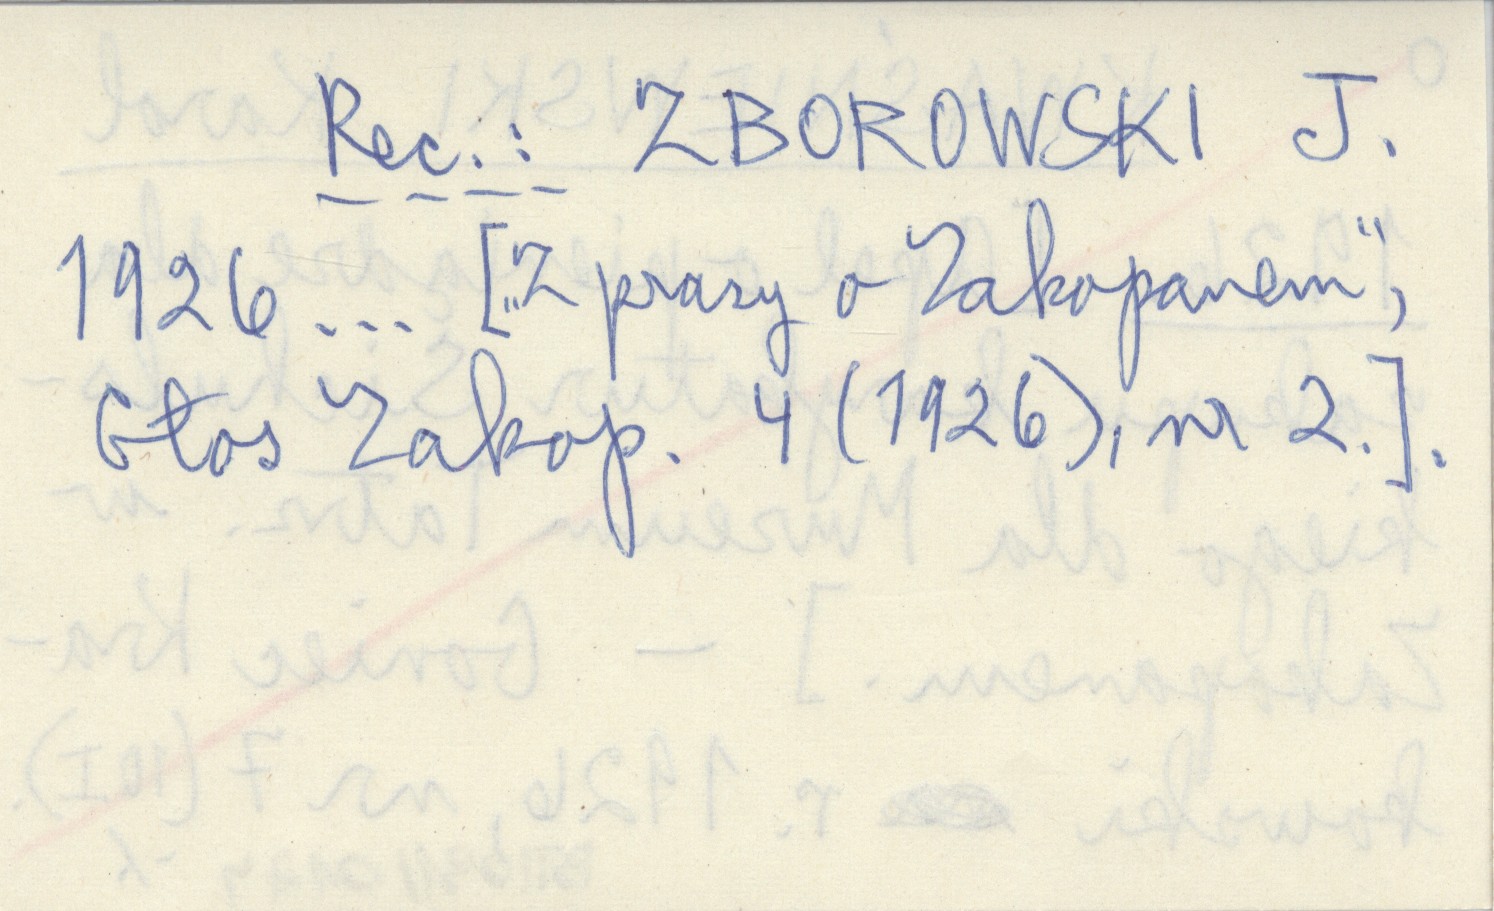 Rec.: ZBOROWSKI J.
1926... [„Z prasy o Zakopanem",
Głos Zakop. 4 (1926), nr 2.].